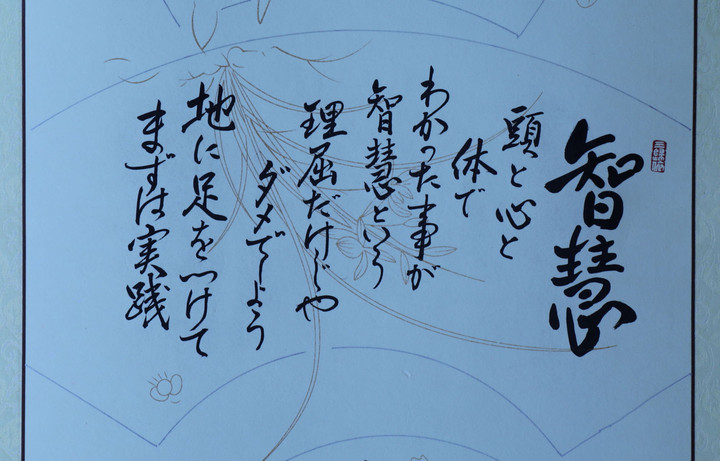 智慧
頭と心と
体で
わかった事が
智慧という
理屈だけじや
ダメでしよう
地に足をつけて
まずは実践